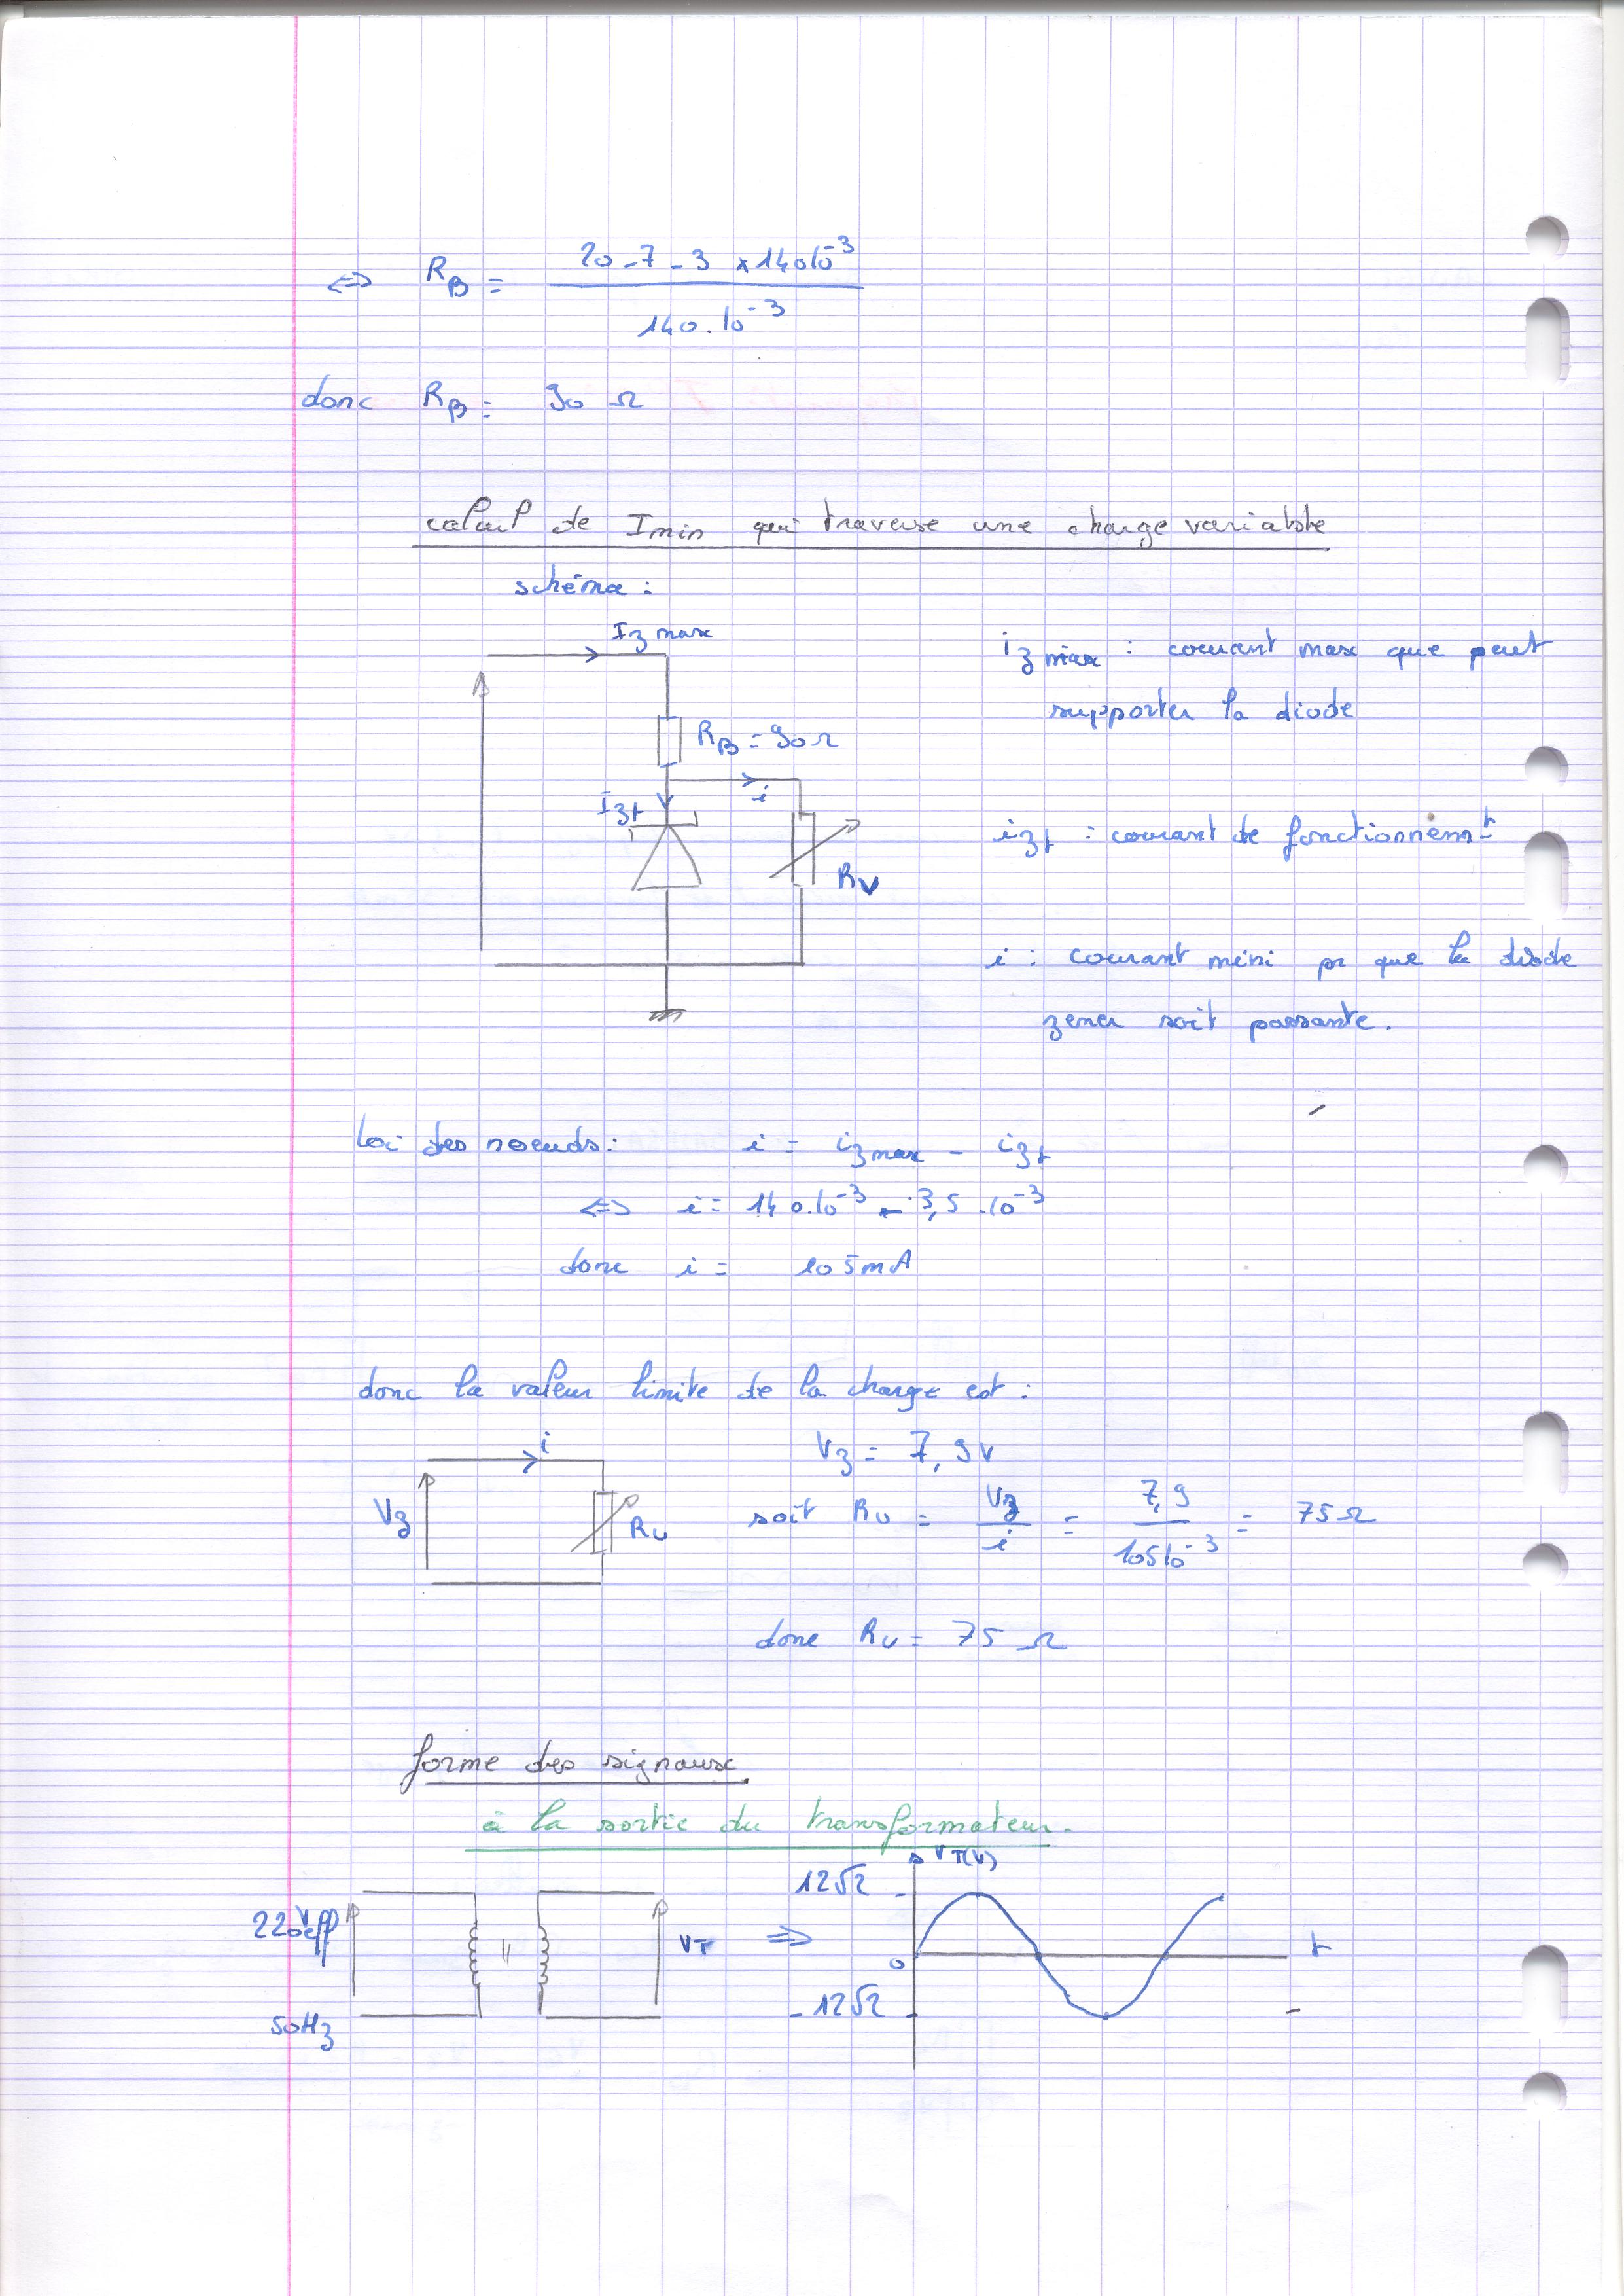 ⇔ R_B = (20 - 7 - 3 × 140 10^-3) / (140.10^-3)
donc R_B = 90 Ω
calcul de Imin qui traverse une charge variable
schéma :
Iz max
R_B = 90 Ω
Izt
i
Rv
iz max : courant max que peut
supporter la diode
izt : courant de fonctionnemt
i : courant mini pr que la diode
zener soit passante.
loi des noeuds : i = iz max - izt
⇔ i = 140.10^-3 - 3,5 .10^-3
donc i = 105mA
donc la valeur limite de la charge est :
i
Vz
Ru
Vz = 7,9V
soit Ru = Vz / i = 7,9 / 105 10^-3 = 75 Ω
donc Ru = 75 Ω
forme des signaux
à la sortie du transformateur.
220Veff
50Hz
VT
⇒
VT(V)
12√2
0
t
-12√2